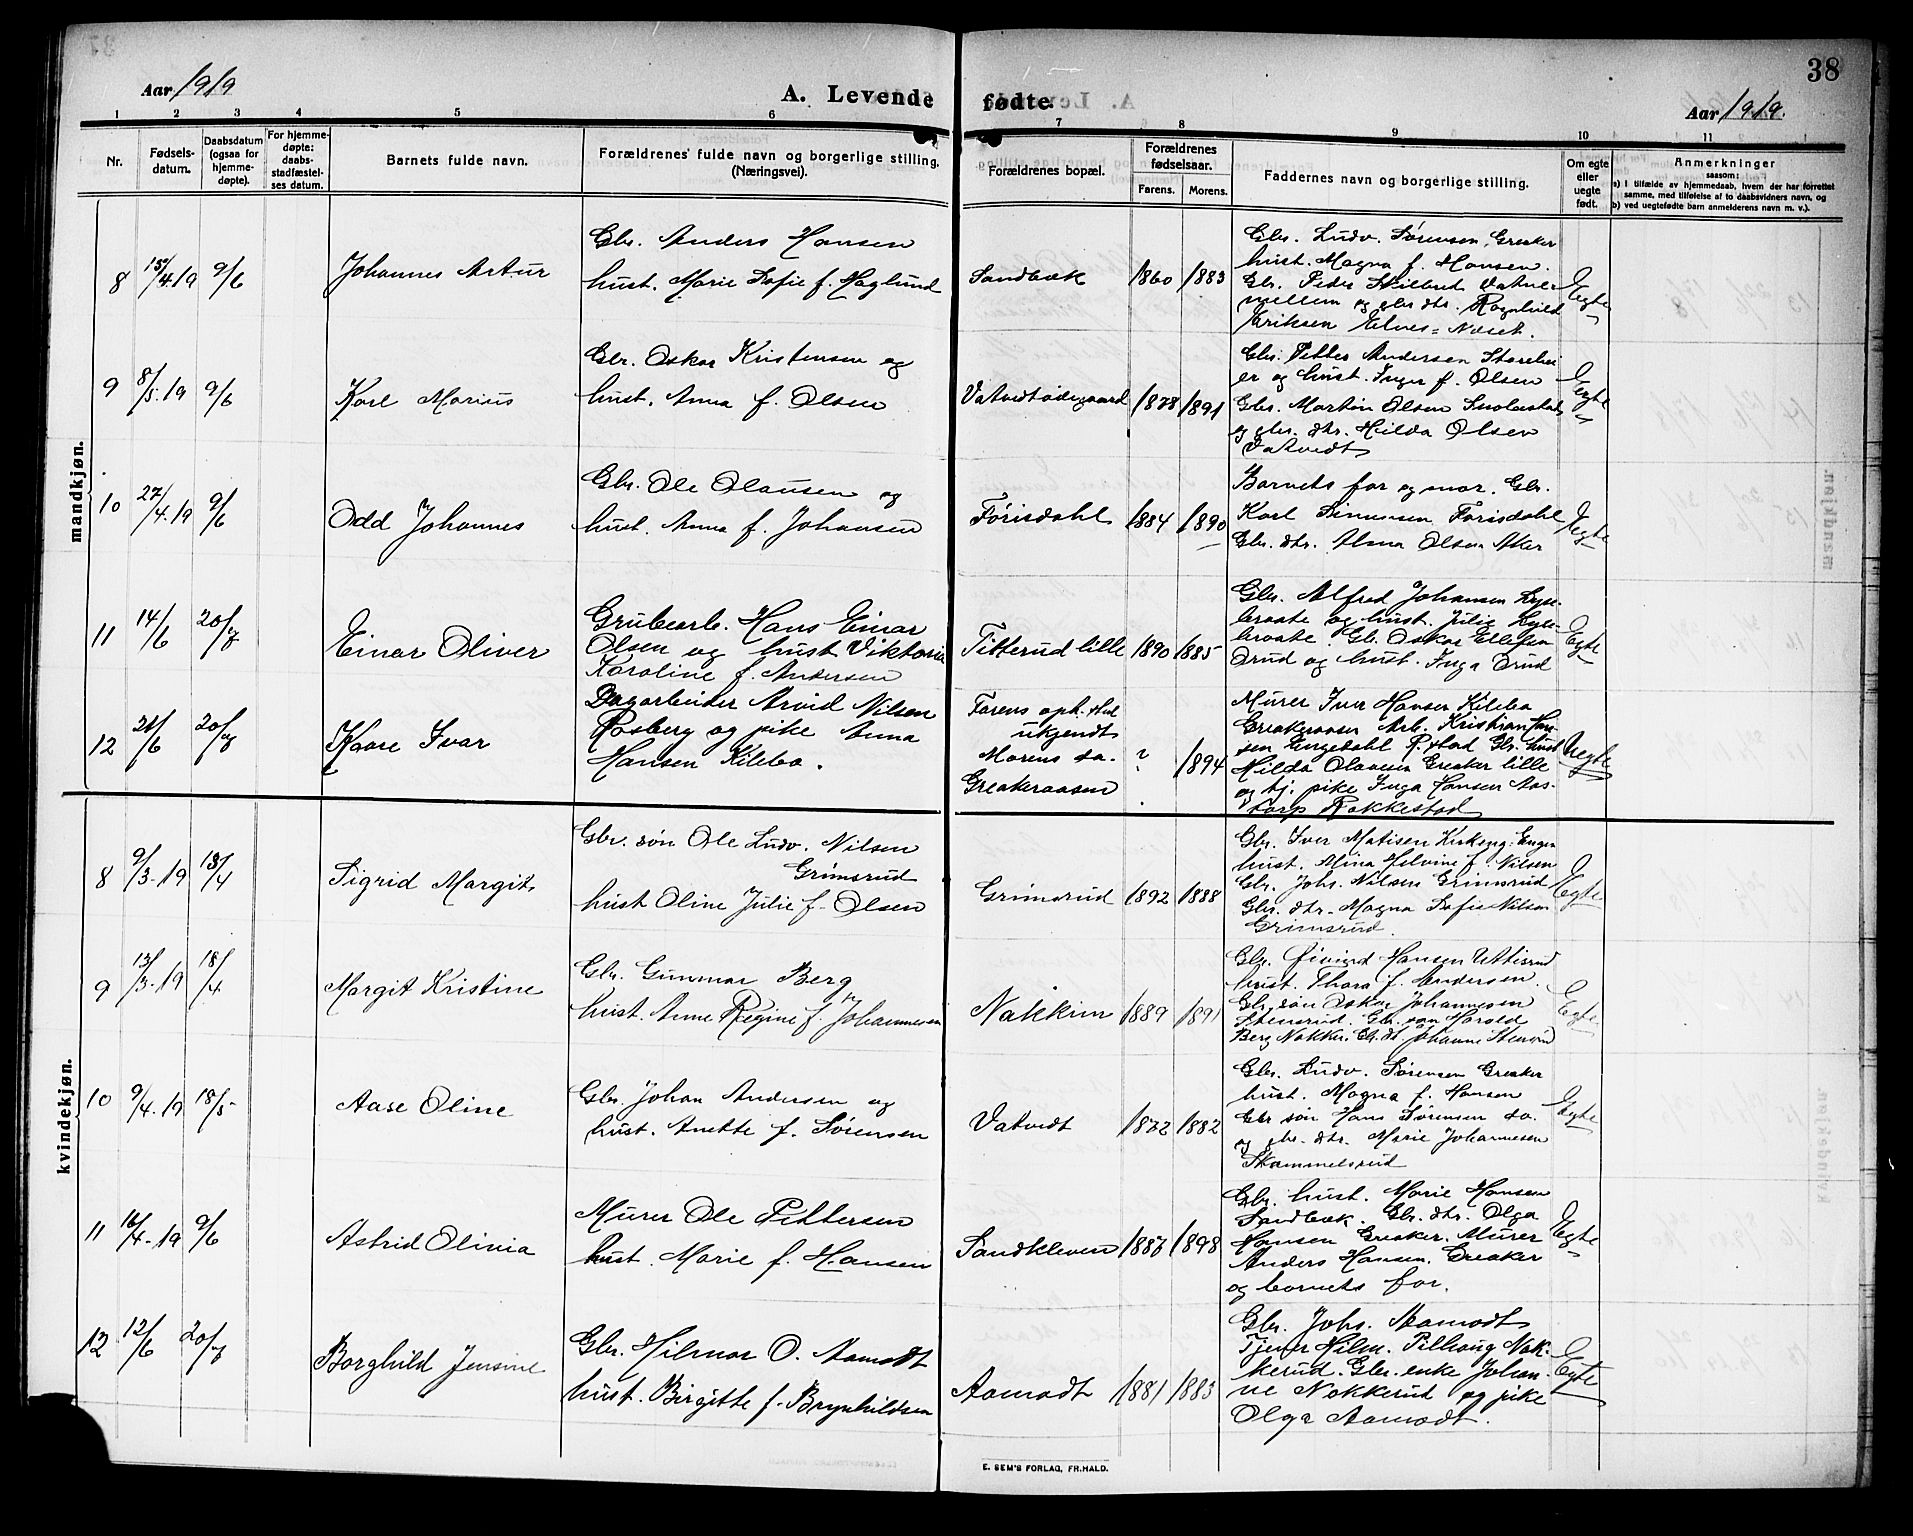 38
Aar 1919
A. Levende fødte.
Aar 1919.
1 2 3 4 5 6 7 8 9 10 11
Nr.
Fødsels-
datum.
Daabsdatum
(ogsaa for
hjemme-
døpte).
For hjemme-
døpte:
daabs-
stadfæstel-
ses datum.
Barnets fulde navn.
Forældrenes' fulde navn og borgerlige stilling.
(Næringsvei).
Forældrenes bopæl.
Forældrenes
fødselsaar.
Farens. Morens.
Faddernes navn og borgerlige stilling.
Om egte
eller
uegte
født.
Anmerkninger
saasom:
a) i tilfælde av hjemmedaab, hvem der har forrettet
samme, med tilføielse af to daabsvidners navn, og
b) ved uegtefødte barn anmelderens navn m. v.).
mandkjøn.
8 15/4.19 9/6
Johannes Artur
Gbr. Anders Hansen
hust. Marie Sofie f. Haglund
Sandbæk 1860 1883
Gbr. Ludv. Sørensen, Greaker
hust. Magna f. Hansen.
Gbr. Peder
mellem og gbr. dtr. Ragnhild
Eriksen Elnes=Næset.
Egte
9 8/5.19 9/6
Karl Marius
Gbr. Oskar Kristensen og
hust. Anna f. Olsen
Vatvedtødegaard 1878 1891
Gbr. Petter Andersen Storehei
er og hust. Inger f. Olsen
Gbr. Martin Olsen
og gbr. dtr. Hilda Olsen
Vatvedt
Egte
10 27/4.19 9/6
Odd Johannes
Gbr. Ole Olausen og
hust. Anna f. Johansen
Førisdahl 1884 1890
Barnets far og mor. Gbr.
Karl Simensen Førisdahl
Gbr. dtr. Alma Olsen Aker
Egte
11 14/6 20/7
Einar Oliver
Grubearb. Hans Einar
Olsen og hust Viktoria
Karoline f. Andersen
Titterud lille 1890 1885
Gbr. Alfred Johansen Lyse-
braate og hust. Julie Lyse-
braate. Gb. Oskar Ellefsen
Orud og hust. Inga Orud
Egte
12 21/6 20/7
Kaare Ivar
Dagarbeider Arvid Nilsen
Rosberg og pike Anna
Hansen Kilebo.
Farens oph. sted
ukjendt
Morens do.
Greakeraasen
? 1894
Murer Iver Hansen Kilebo
Greakeraasen Arb. Kristian Han-
sen Engedahl R.stad Gbr. hust
Hilda Olavesen Greaker lille
og tj. pike Inga Hansen Aas-
torp Rakkestad
Uegte
kvindekjøn.
8 9/3-19 18/4
Sigrid Margit
Gbr. søn Ole Ludv. Nilsen
Grimsrud
hust Oline Julie f. Olsen
Grimsrud 1892 1888
Gbr. Iver Matisen Kirkeng. Engen
hust. Mina Helvine f. Nilsen
Gbr. Johs. Nilsen Grimsrud
Gbr. dtr. Magna Sofie Nilsen
Grimsrud.
Egte
9 13/3-19 18/4
Margit Kristine
Gbr. Gunnar Berg
hust. Anne Regine f. Johannesen
Nakkim 1889 1891
Gbr. Øivind Hansen Uttisrud
hust. Thora f. Andersen.
Gbr. søn Oskar Johannesen
Stensrud. Gbr. søn Harald
Berg Nakkim. Gb. dt. Johanne Stensrud
Egte
10 9/4.19 18/5
Aase Oline
Gbr. Johan Andersen og
hust. Anette f. Sørensen
Vatvedt 1872 1882
Gbr. Ludv. Sørensen Greaker
hust. Magna f. Hansen
Gbr søn Hans Sørensen do.
og gbr. dtr. Marie Johannesen
Skammelsrud
Egte
11 16/4-19 9/6
Astrid Olivia
Murer Ole Pettersen
hust. Marie f. Hansen
Sandkleven 1887 1898
Gbr. hust. Marie Hansen
Sandbæk. Gbr. dtr. Olga
Hansen Greaker. Murer
Anders Hansen. Greaker
og barnets far.
Egte
12 12/6 20/7
Borghild Jensine
Gbr. Hilmar O. Aamodt
hust. Birgitte f. Brynhildsen
Aamodt 1881 1883
Gbr. Johs. Aamodt
Tjener Hilm. Pilhaug Nak-
kerud. Gbr. enke Johan-
ne Nakkerud og pike
Olga Aamodt.
Egte
E. SEM'S FORLAG, FR.HALD.